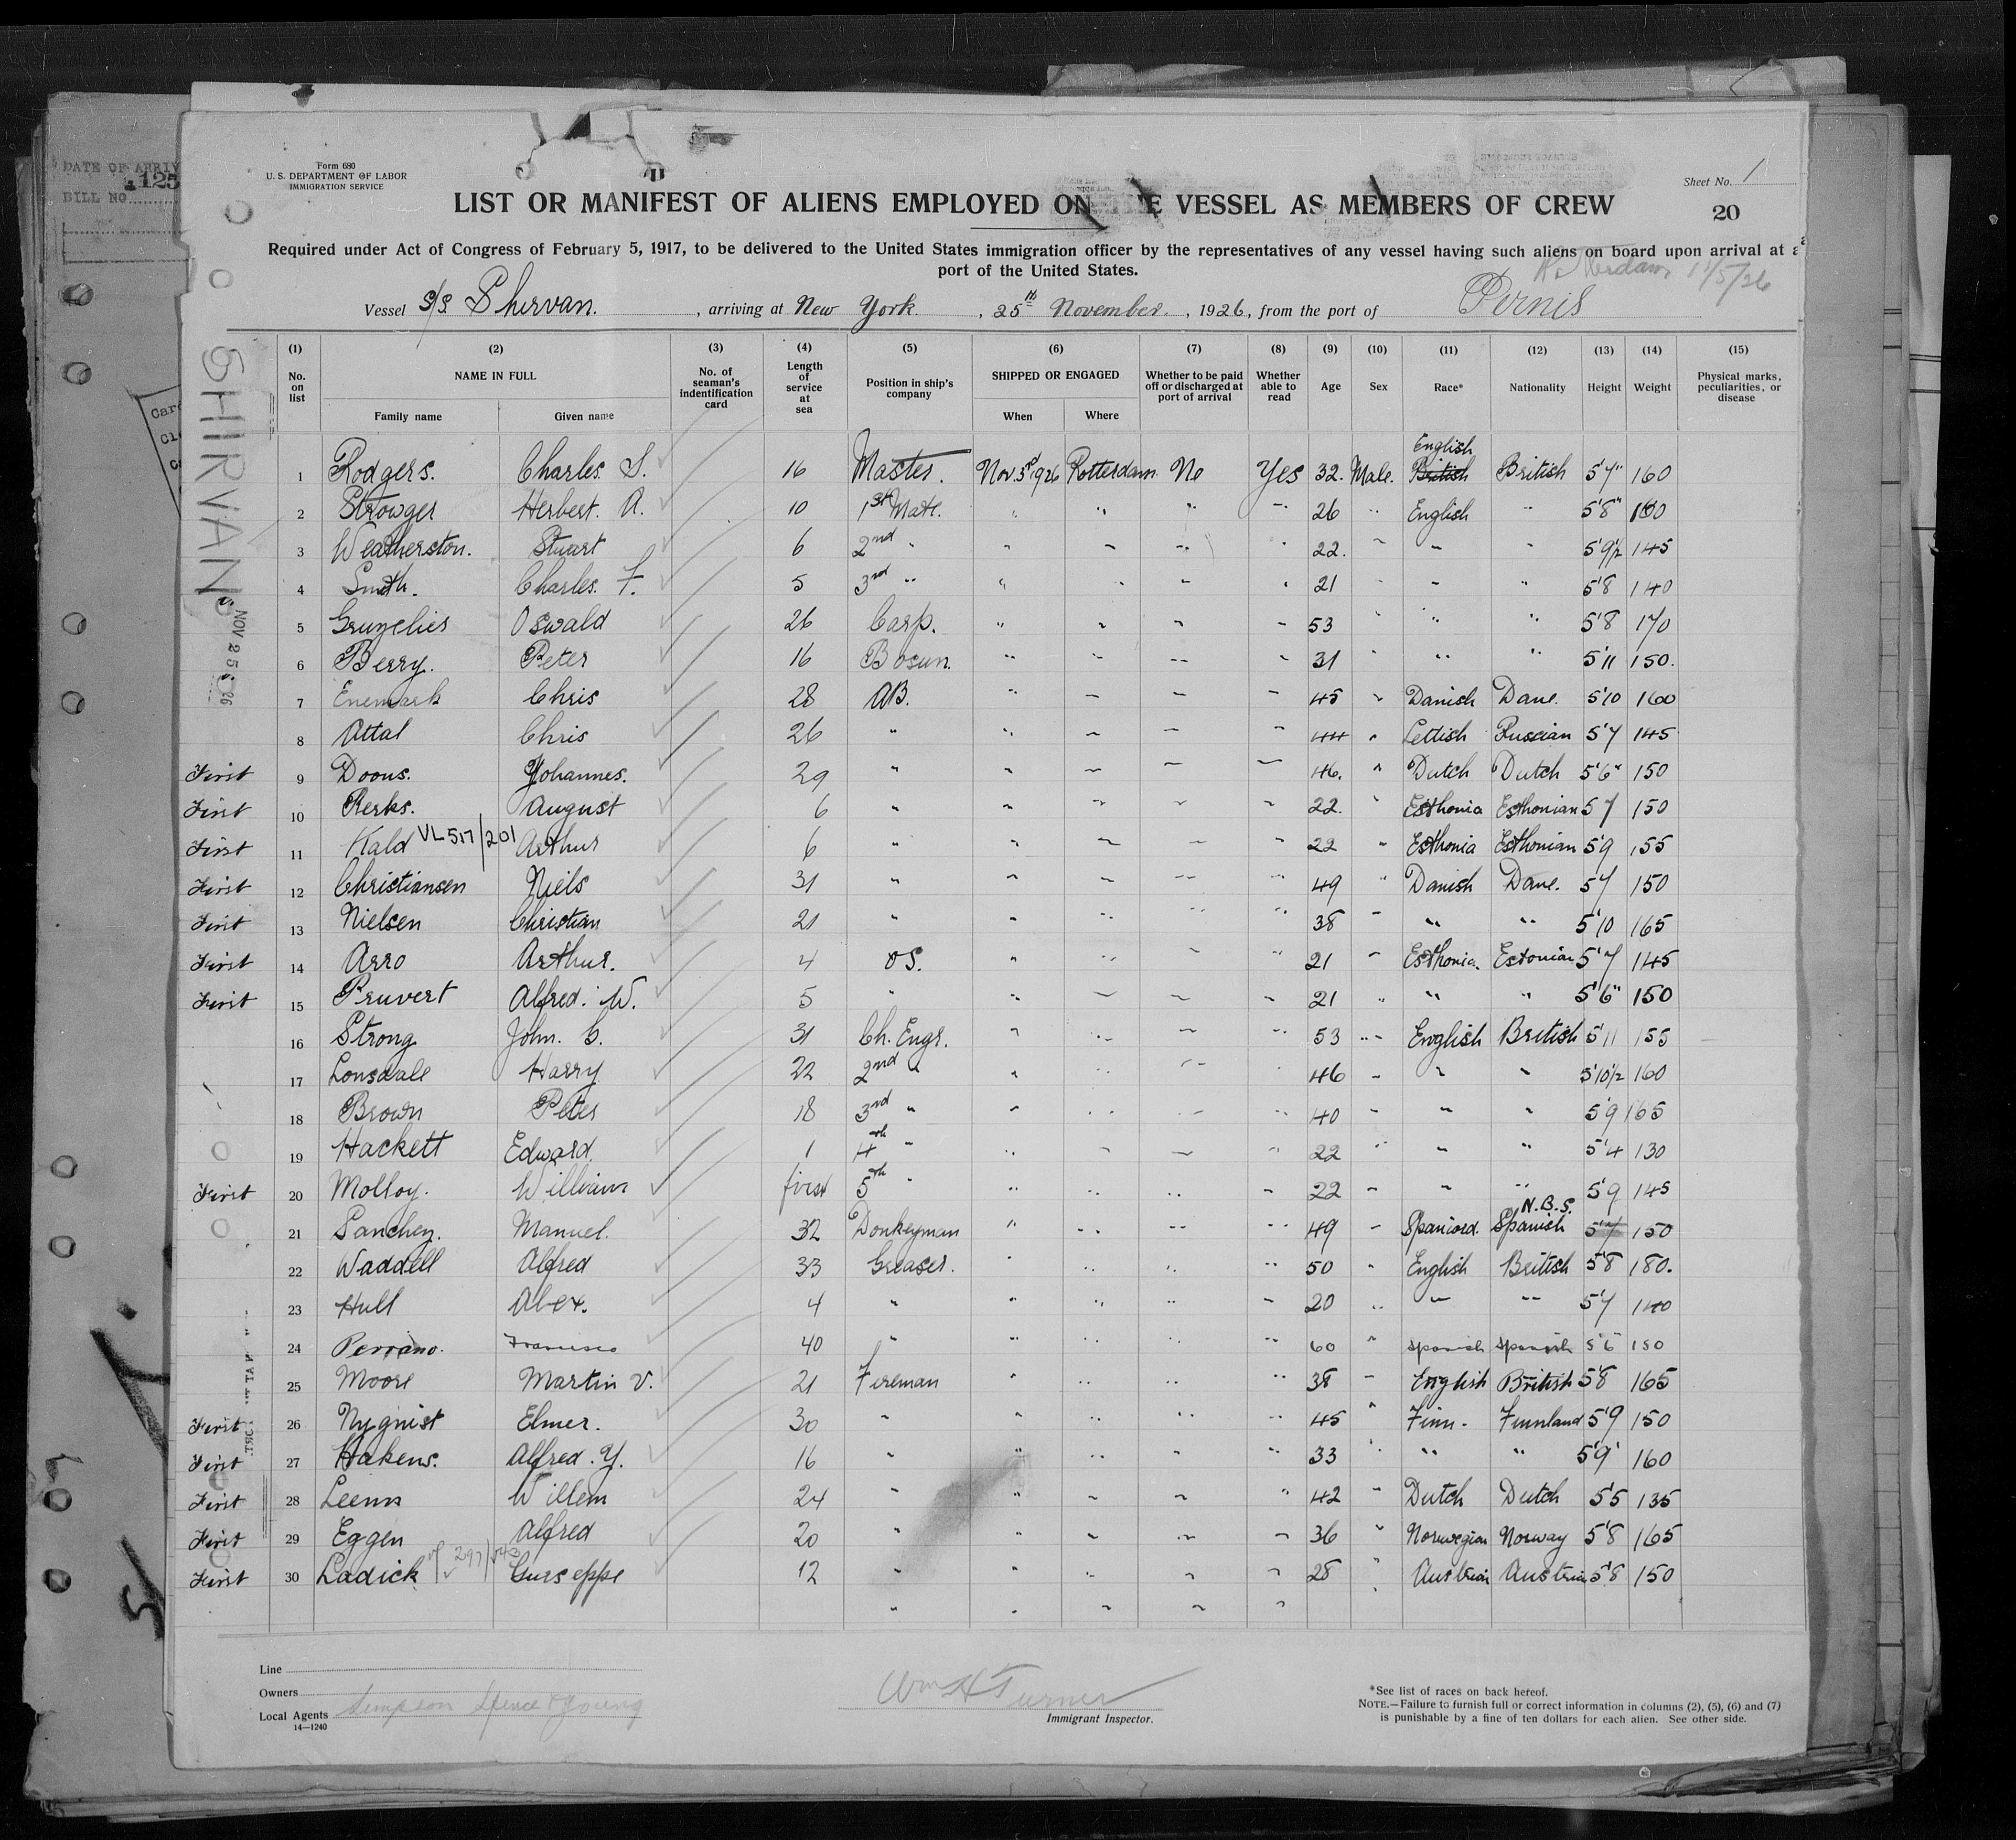 DATE OF ARRIV
125
BILL NO.
Form 680
U. S. DEPARTMENT OF LABOR
IMMIGRATION SERVICE
Sheet No. 1
20
LIST OR MANIFEST OF ALIENS EMPLOYED ON E VESSEL AS MEMBERS OF CREW
Required under Act of Congress of February 5, 1917, to be delivered to the United States immigration officer by the representatives of any vessel having such aliens on board upon arrival at a
port of the United States.
Rotterdam 11/5/26
Vessel S/S. Shervan. , arriving at New York , 25th November. , 1926, from the port of Pernis
SHIRVAN
NOV 25 1926
(1) (2) (3) (4) (5) (6) (7) (8) (9) (10) (11) (12) (13) (14) (15)
No. on list
NAME IN FULL
Family name Given name
No. of seaman's indentification card
Length of service at sea
Position in ship's company
SHIPPED OR ENGAGED
When Where
Whether to be paid off or discharged at port of arrival
Whether able to read
Age Sex Race* Nationality Height Weight
Physical marks, peculiarities, or disease
English
1 Rodgers. Charles. S. 16 Master. Nov. 3rd 1926 Rotterdam. No Yes 32. Male. British British 5'7" 160
2 Strowger Herbert. A. 10 1st Mate. " " " " 26 " English " 5'8" 160
3 Weatherston. Stuart 6 2nd " " " " " 22. " " " 5'9½ 145
4 Smith. Charles. F. 5 3rd " " " " " 21 " " " 5'8 140
5 Oswald 26 Carp. " " " " 53 " " " 5'8 170
6 Berry. Peter 16 Bosun. " " " " 31 " " " 5'11 150.
7 Enemark Chris 28 AB. " " " " 45 " Danish Dane. 5'10 160
8 Attal Chris 26 " " " " " 44 " Lettish Russian 5'7 145
First 9 Doons. Yohannes. 29 " " " " " 46. " Dutch Dutch 5'6" 150
First 10 Rerks. August 6 " " " " " 22. " Esthonia Esthonian 5'7 150
First 11 Kald VL517/201 Arthur 6 " " " " " 22 " Esthonia Esthonian 5'9 155
First 12 Christiansen Niels 31 " " " " " 49 " Danish Dane. 5'7 150
First 13 Nielsen Christian 21 " " " " " 38 " " " 5'10 165
First 14 Arro Arthur. 4 OS. " " " " 21 " Esthonia. Estonian 5'7 145
First 15 Pruvert Alfred. W. 5 " " " " " 21 " " " 5'6" 150
16 Strong John. C. 31 Ch. Engr. " " " " 53 " English British 5'11 155
17 Lonsdale Harry 22 2nd " " " " " 46 " " " 5'10½ 160
18 Brown Peter 18 3rd " " " " " 40 " " " 5'9 165
19 Hackett Edward. 1 4th " " " " " 22 " " " 5'4 130
First 20 Molloy. William first 5th " " " " " 22 " " " 5'9 145
N.B.S.
21 Sanchez. Manuel. 32 Donkeyman " " " " 49 " Spaniard. Spanish 5'7 150
22 Waddell Alfred 33 Greaser. " " " " 50 " English British 5'8 180.
23 Hull Alex. 4 " " " " " 20 " " " 5'7 140
24 Perrano. Francisco 40 " " " " 60 " Spanish Spanish 5'6 150
25 Moore Martin V. 21 Fireman " " " 38 " English British 5'8 165
First 26 Nyqnist Elmer. 30 " " " " " 45 " Finn. Finnland 5'9 150
First 27 Hakens. Alfred. Y. 16 " " " " " 33 " " " 5'9 160
First 28 Leenn Willem 24 " " " " " 42 " Dutch Dutch 5'5 135
First 29 Eggen Alfred 20 " " " " " 36 " Norwegian Norway 5'8 165
First 30 Ladick Gurseppe 12 " " " " " 28 " Austrian Austrian 5'8 150
" " " " "
Line
Owners
Local Agents Simpson Spence & Young
14—1240
Wm H Turner
Immigrant Inspector.
*See list of races on back hereof.
NOTE.—Failure to furnish full or correct information in columns (2), (5), (6) and (7)
is punishable by a fine of ten dollars for each alien. See other side.